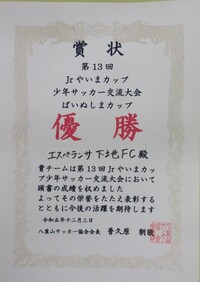 賞状
第13回
Jrやいまカップ
少年サッカー交流大会
ぱいぬしまカップ
優勝
エスペランサ下地FC殿
貴チームは第13回Jrやいまカッ
プ少年サッカー交流大会において
頭書の成績を収めました
よってその栄誉をたたえ表彰する
とともに今後の活躍を期待します
令和五年十二月三日
八重山サッカー協会会長 普久原 朝敬